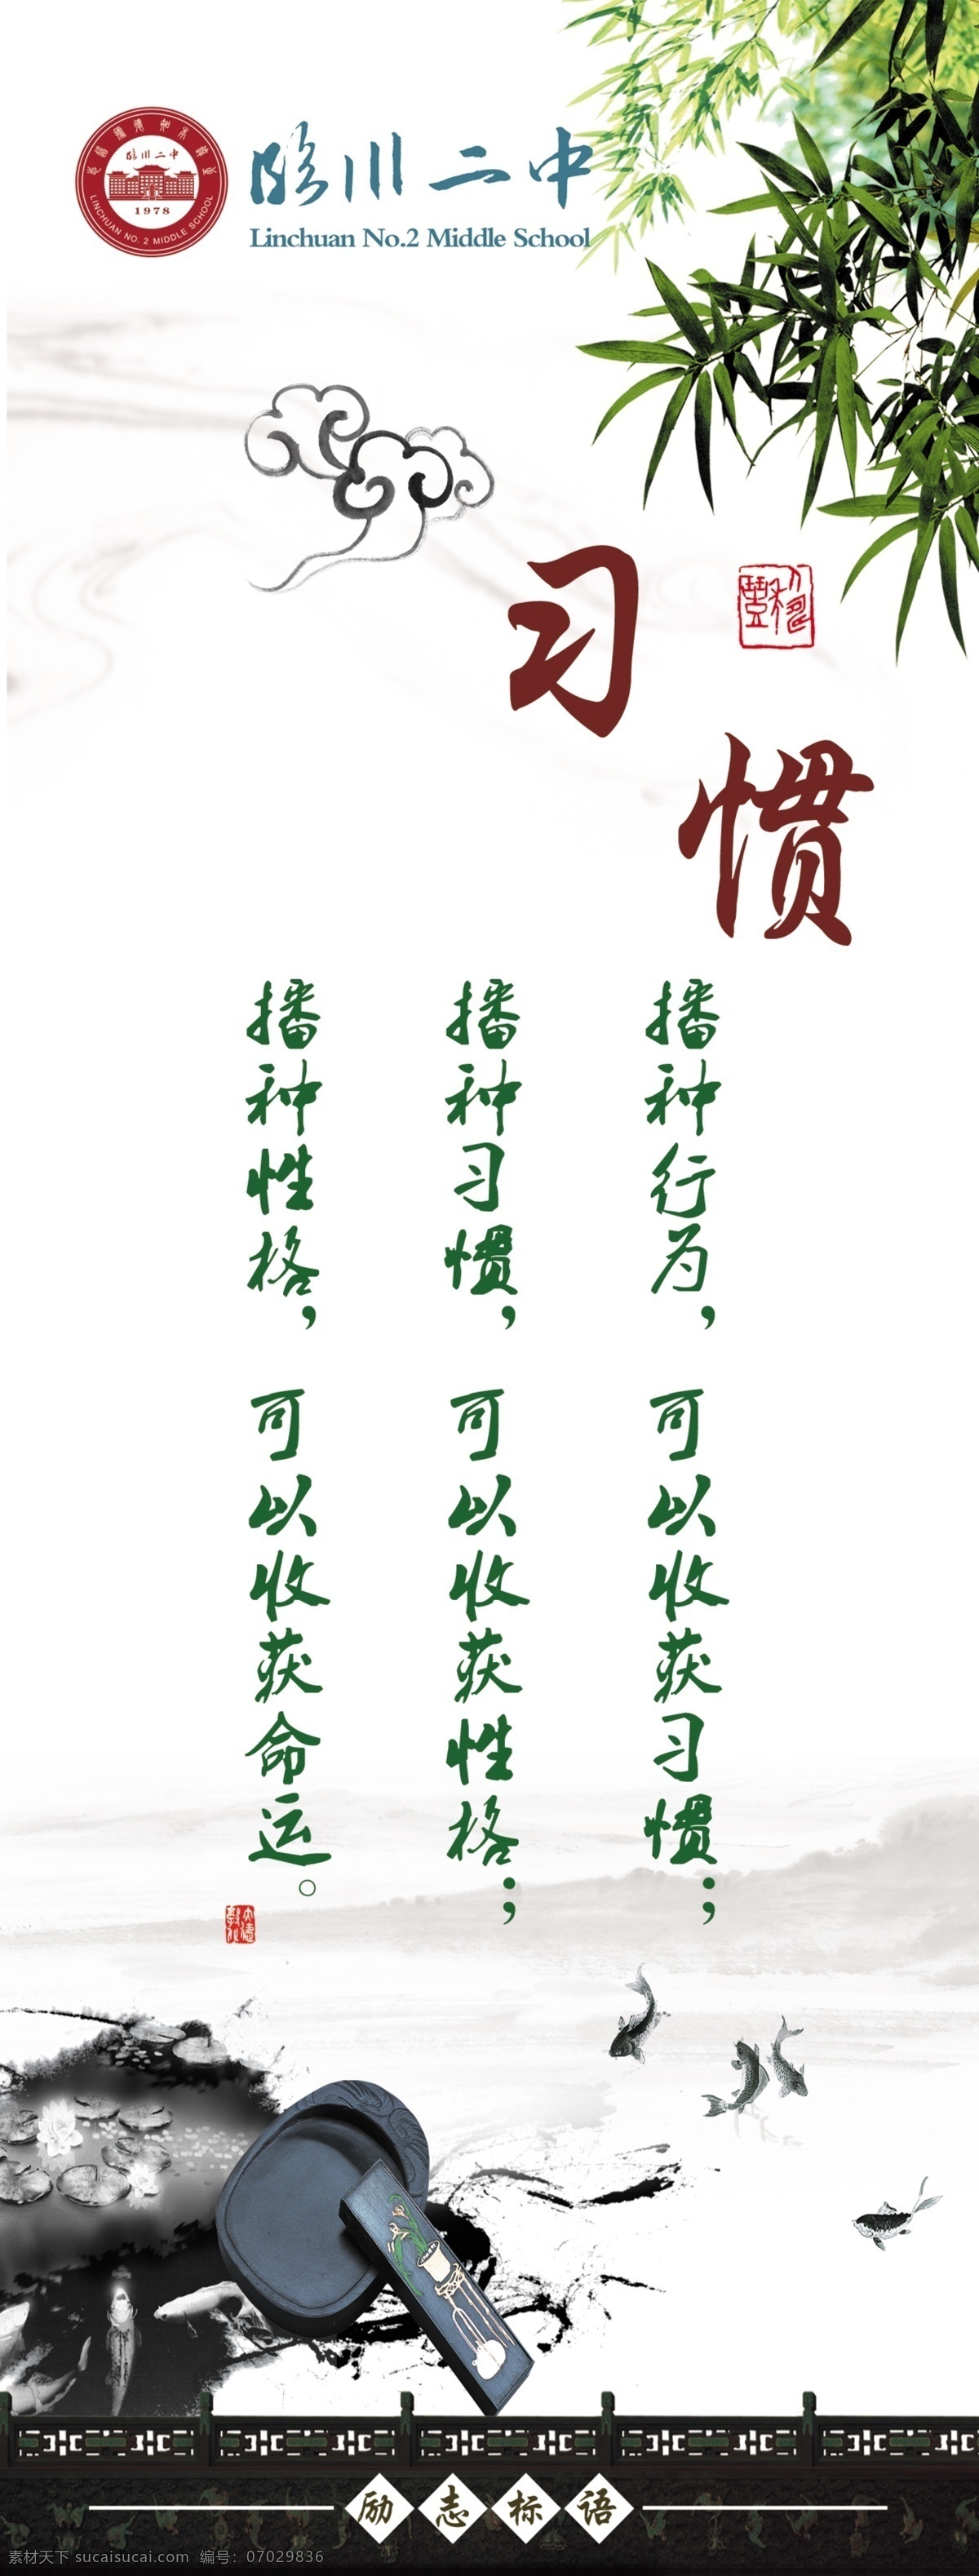 临川二中
Linchuan No.2 Middle School
临川二中
1978
LINCHUAN NO. 2 MIDDLE SCHOOL
习惯
播种行为，可以收获习惯；
播种习惯，可以收获性格；
播种性格，可以收获命运。
励志标语
素材天下 sucaisucai.com 编号：07029836